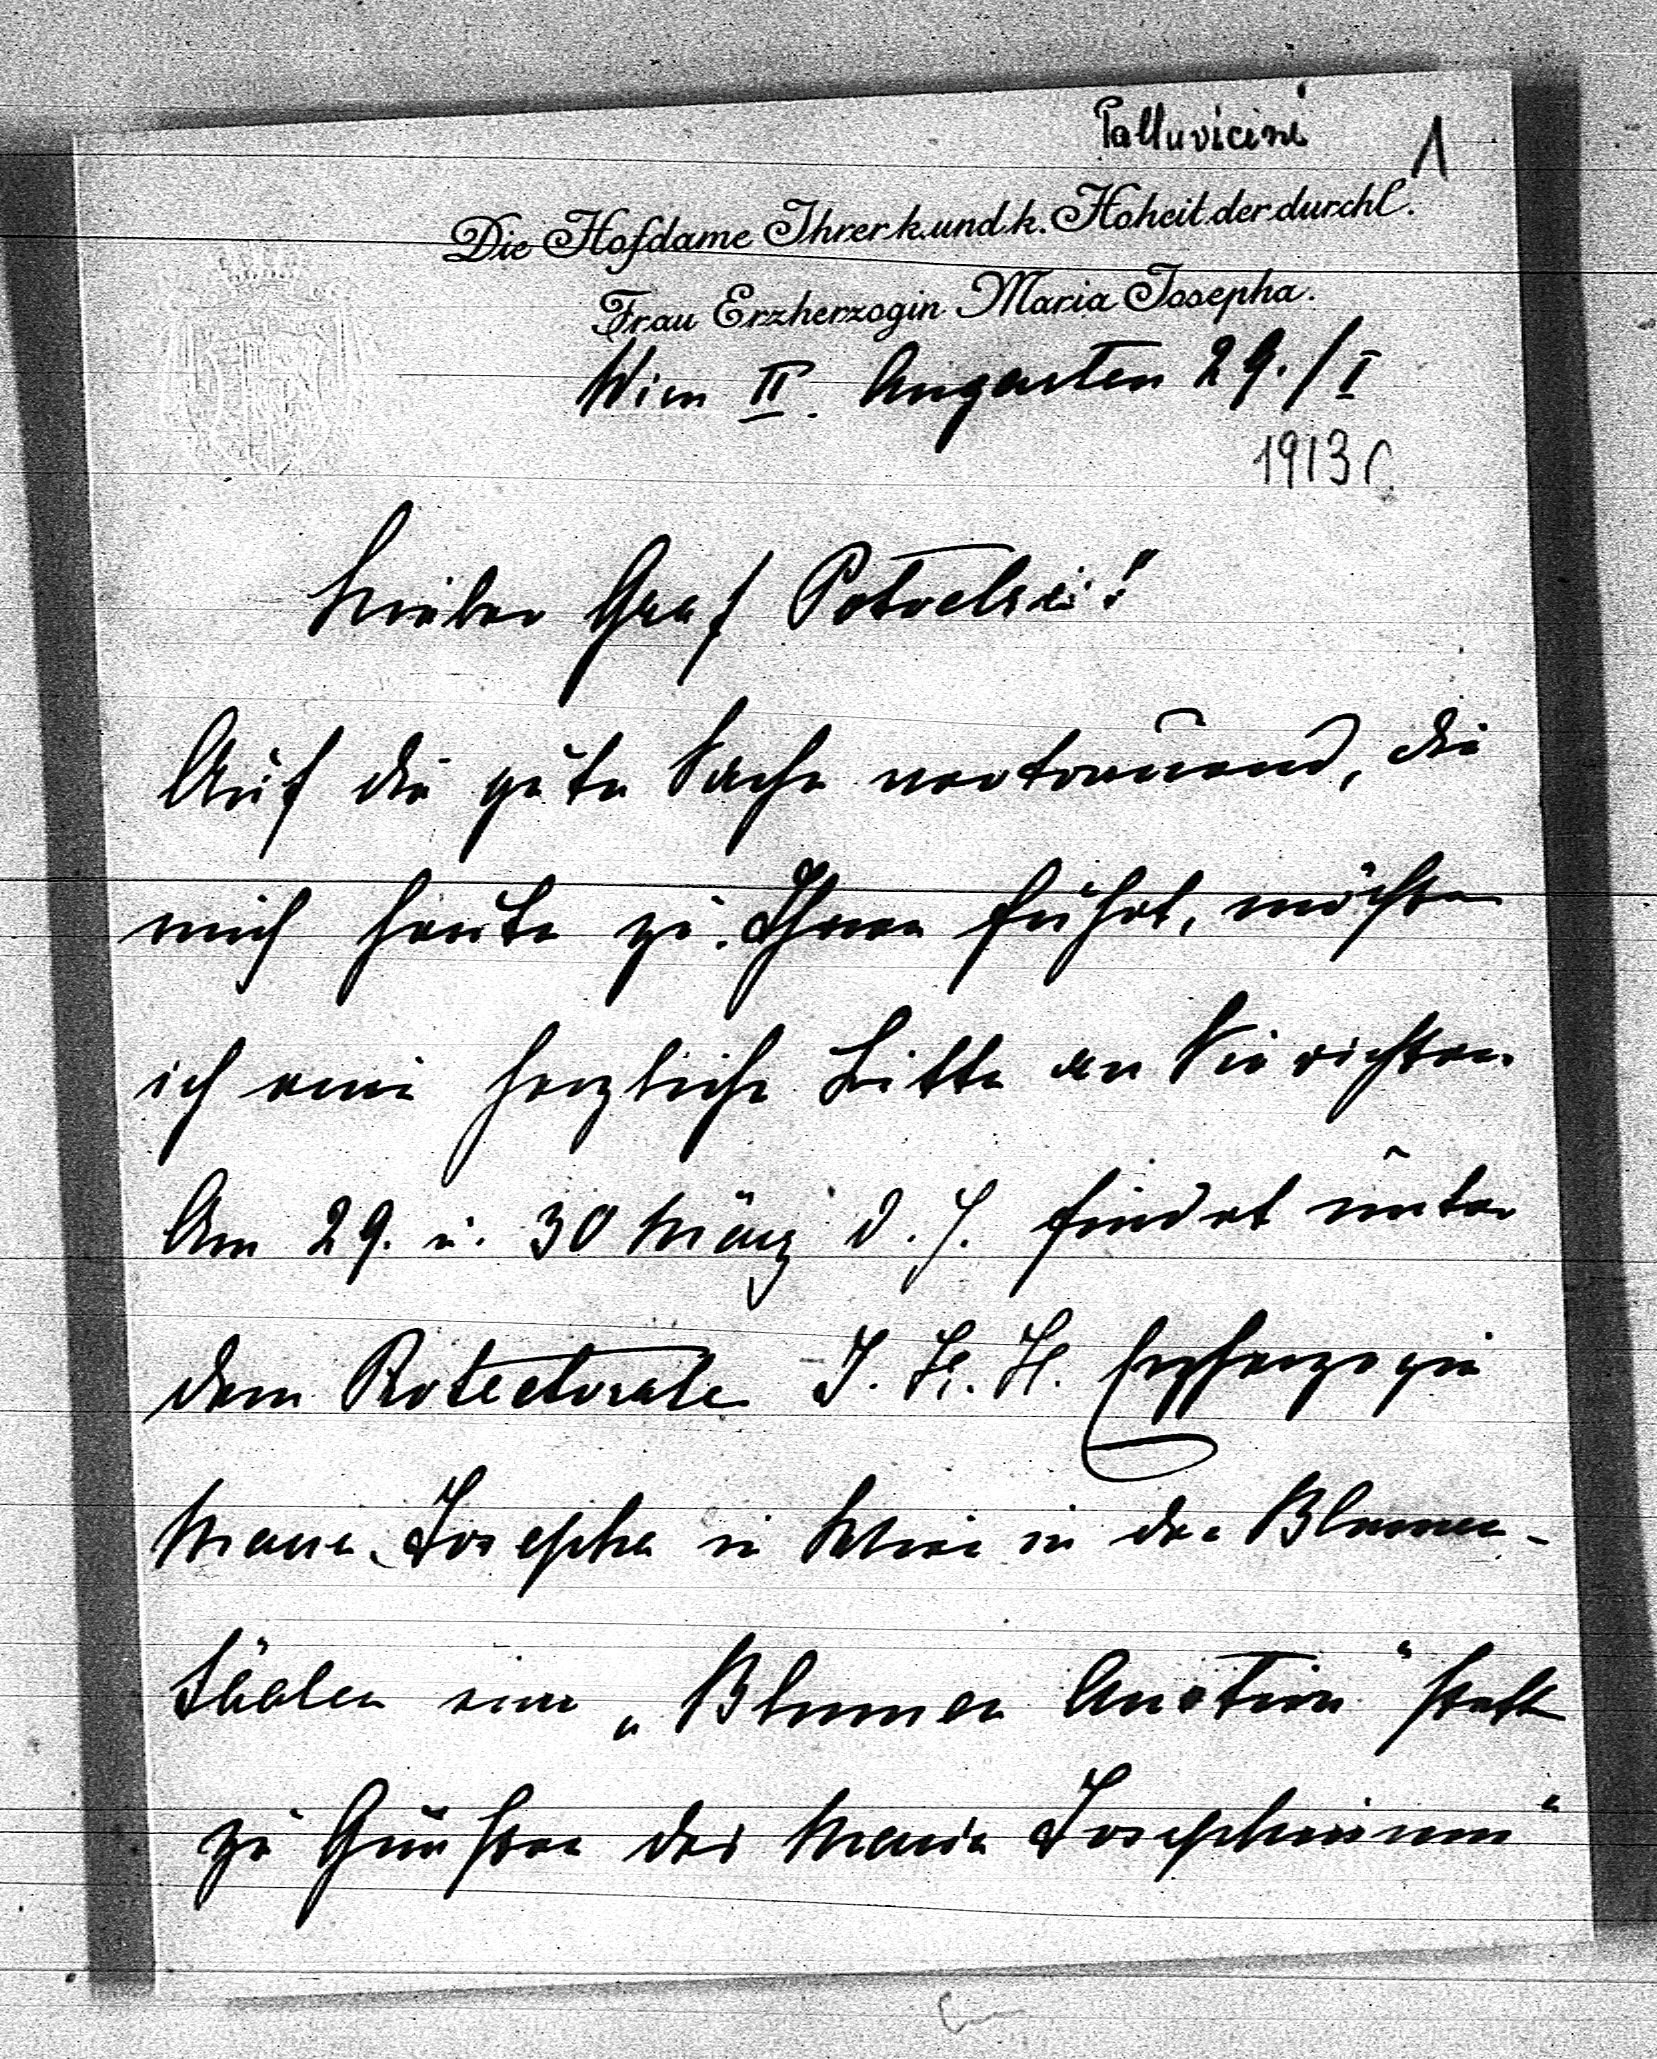 Palluvicini
1
Die Hofdame Ihrer k. und k. Hoheit der durchl.
Frau Erzherzogin Maria Josepha.
Wien II. Augarten 29./I
1913 r.
Lieber Graf Potocki!
Auf die gute Sache vertrauend, die
mich heute zu Ihnen führt, möchte
ich eine herzliche Bitte an Sie richten.
Am 29. u. 30 März d. J. findet unter
dem Protectorate I. K. H. Erzherzogin
Maria Josepha in Wien in den Blumen-
Säälen eine „Blumen Auction" statt
zu Gunsten des Maria Josephinum"